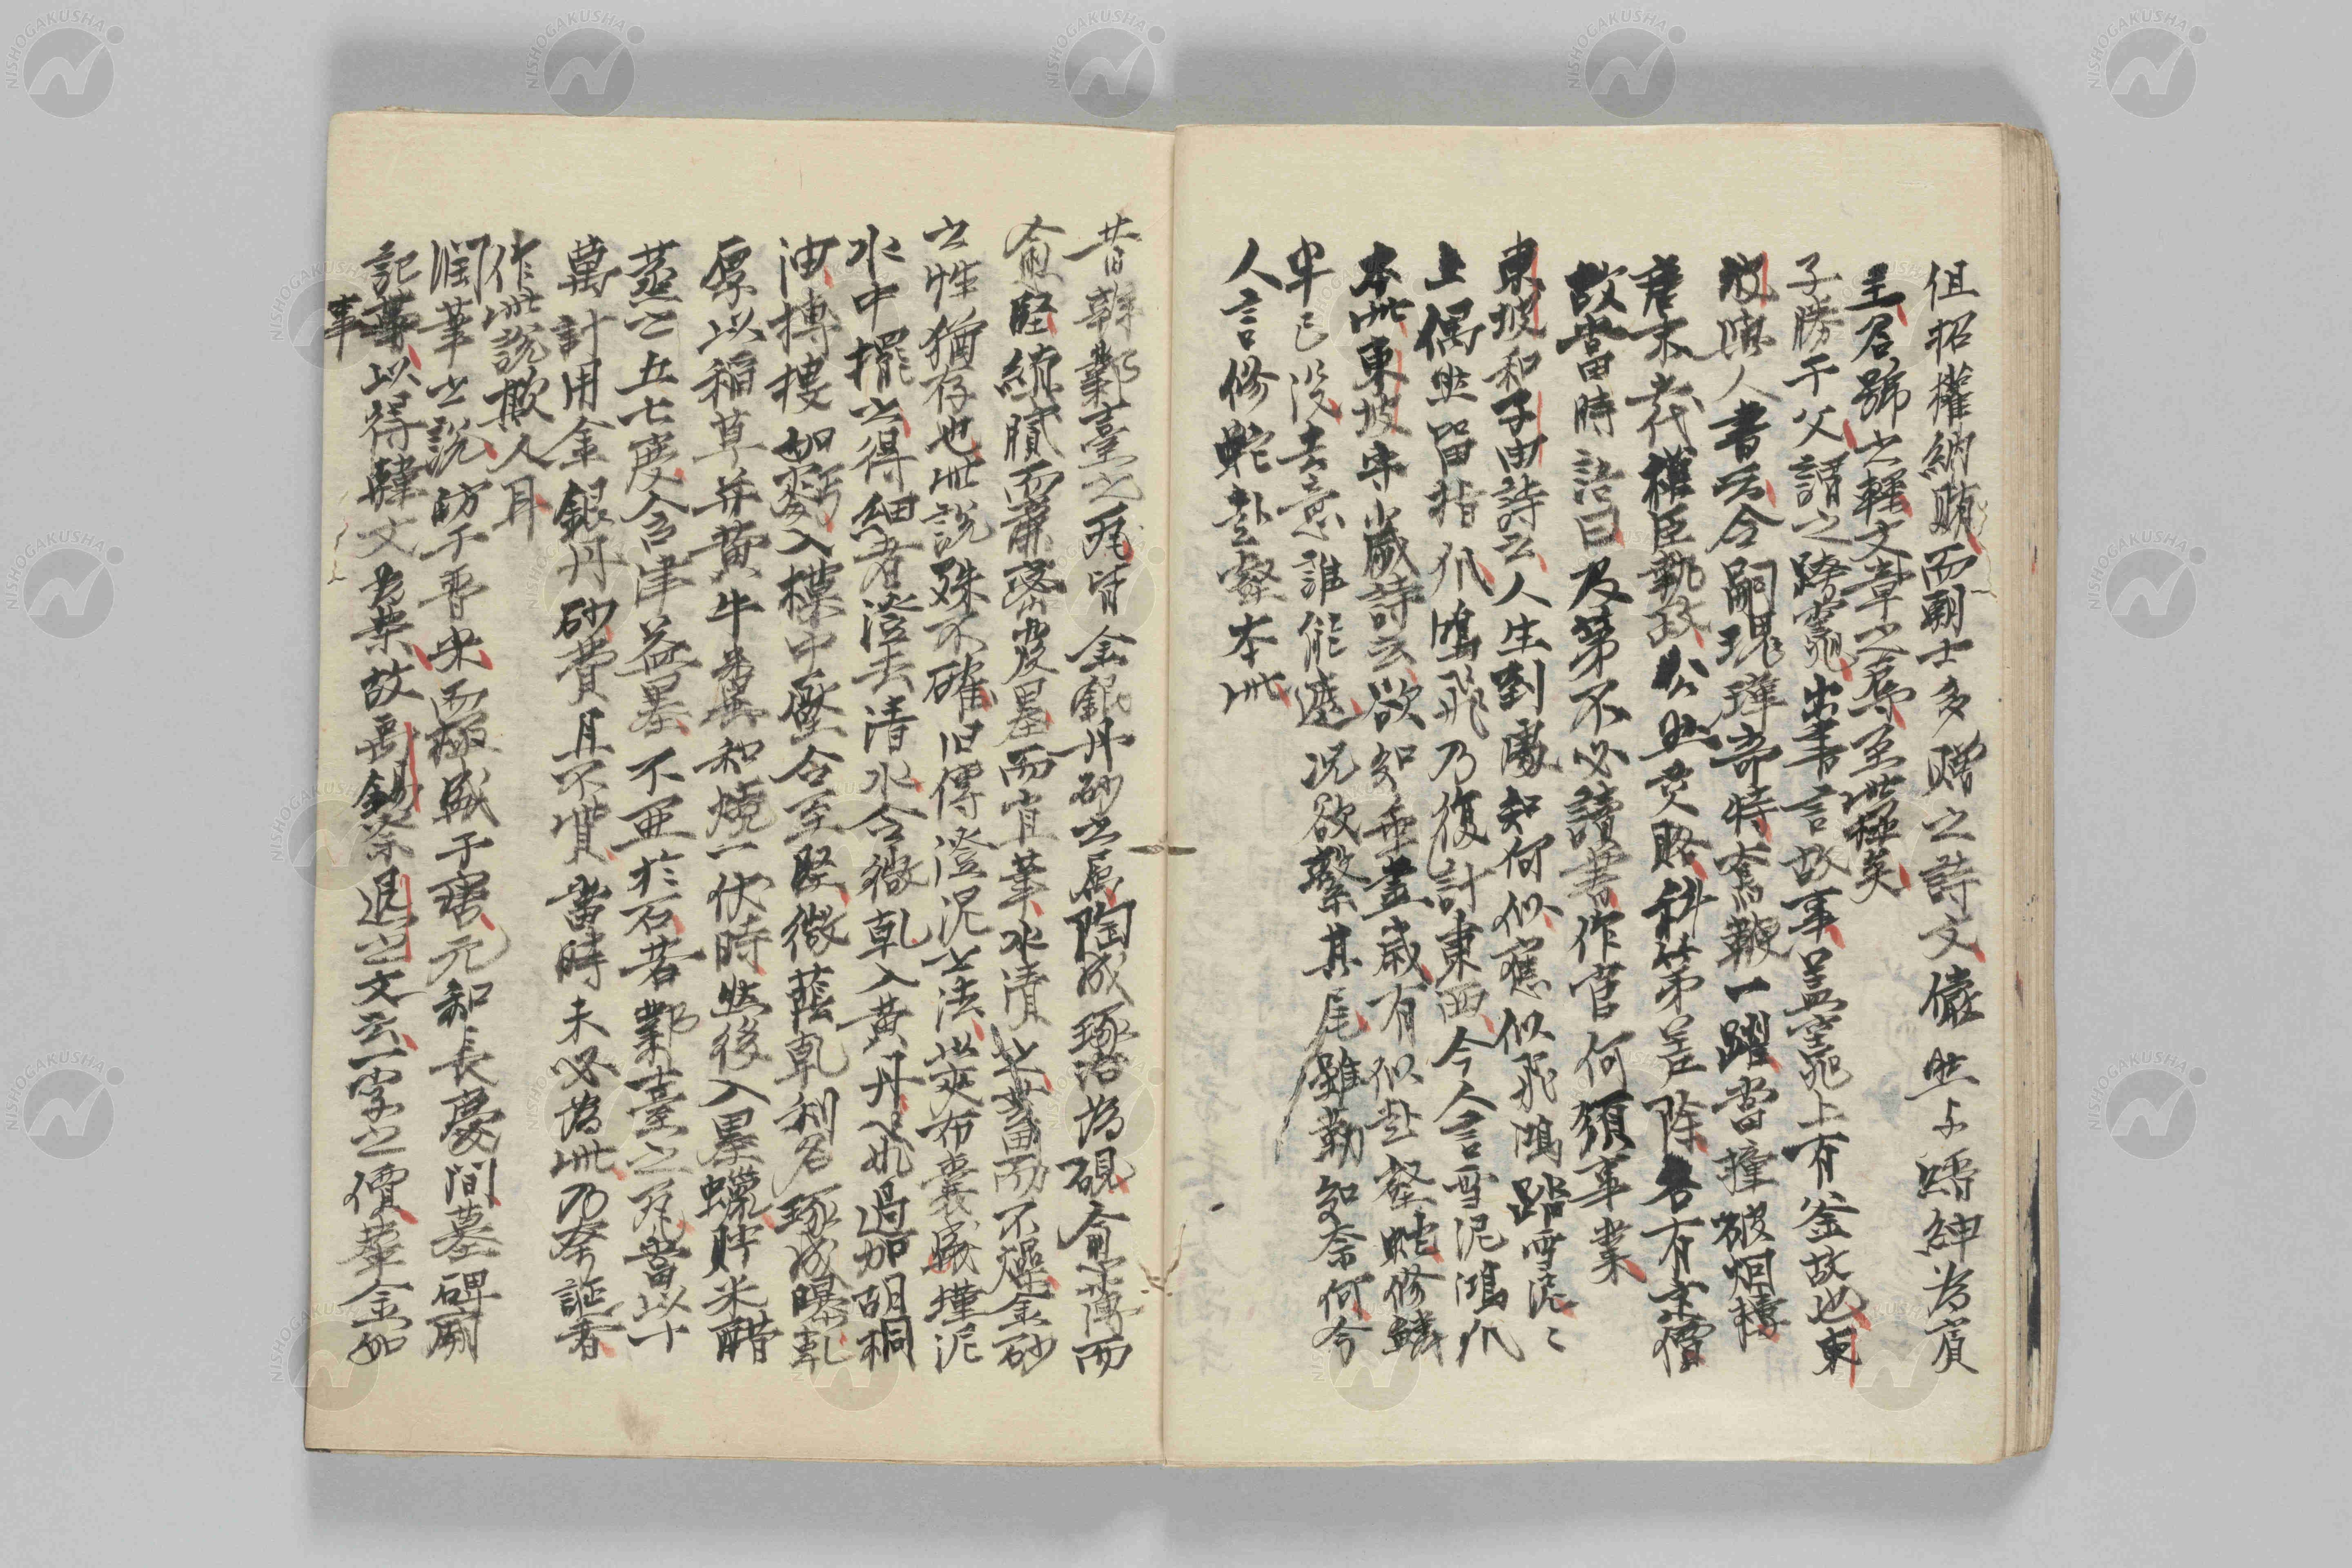 但招權納賄而朝士多贈之詩文儼然与縉紳為賓
主名號之輕文章之辱至此極矣
子勝于父謂之跨竈出書言故事盖竈上有釜故也東
坡与人書云令嗣瑰瑋奇特奮鞭一躍當撞破烟樓
唐末五代權臣執政公然交賂科第差除各有等價
故當時語曰及第不必讀書作官何須事業
東坡和子由詩云人生到處知何似應似飛鴻踏雪泥〻
上偶然留指爪鴻飛乃復計東西今人言雪泥鴻爪
本此東坡守歲詩云欲知垂盡歳有似赴壑蛇修鱗
半已没去意誰能遮况欲繫其尾雖勤知奈何今
人言修蛇赴壑本此
昔韓鄴臺之瓦皆金銀丹砂之屬陶成琢治為硯俞薄而
俞堅縝膩而肅密發墨而宜筆水漬之蓄而不燥金砂
之性猶存也此說殊不確旧傳澄泥之法以夾布囊盛墐泥
水中擺之得細者澄去清水令微乹入黄丹以過加胡桐
油摶摟如麪入模中壓令至堅微蔭乹利刀琢成曝乹
厚以稲草并黄牛糞和燒一伏時然後入墨蠟貯米醋
蒸之五七度含津益墨不亜於石若鄴臺之瓦當以十
萬計用金銀丹砂費且不貲當時未必為此乃奉証者
作此說欺人耳
潤筆之說昉于晋宋而極盛于唐元和長慶間墓碑廟
記等以得韓文為榮故禹錫祭退之文云一字之價輦金如
事